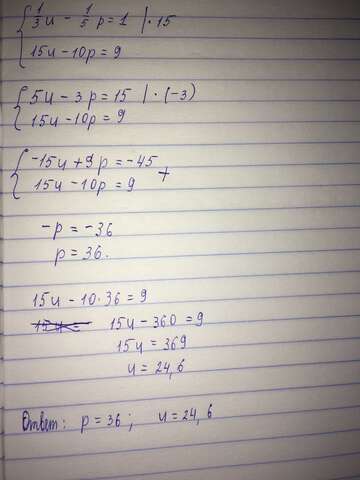 1/3 u - 1/5 p = 1 | · 15
15u - 10p = 9
5u - 3p = 15 | · (-3)
15u - 10p = 9
-15u + 9p = -45
15u - 10p = 9 +
-p = -36
p = 36.
15u - 10 · 36 = 9
15u - 360 = 9
15u = 369
u = 24,6
Ответ: p = 36; u = 24,6